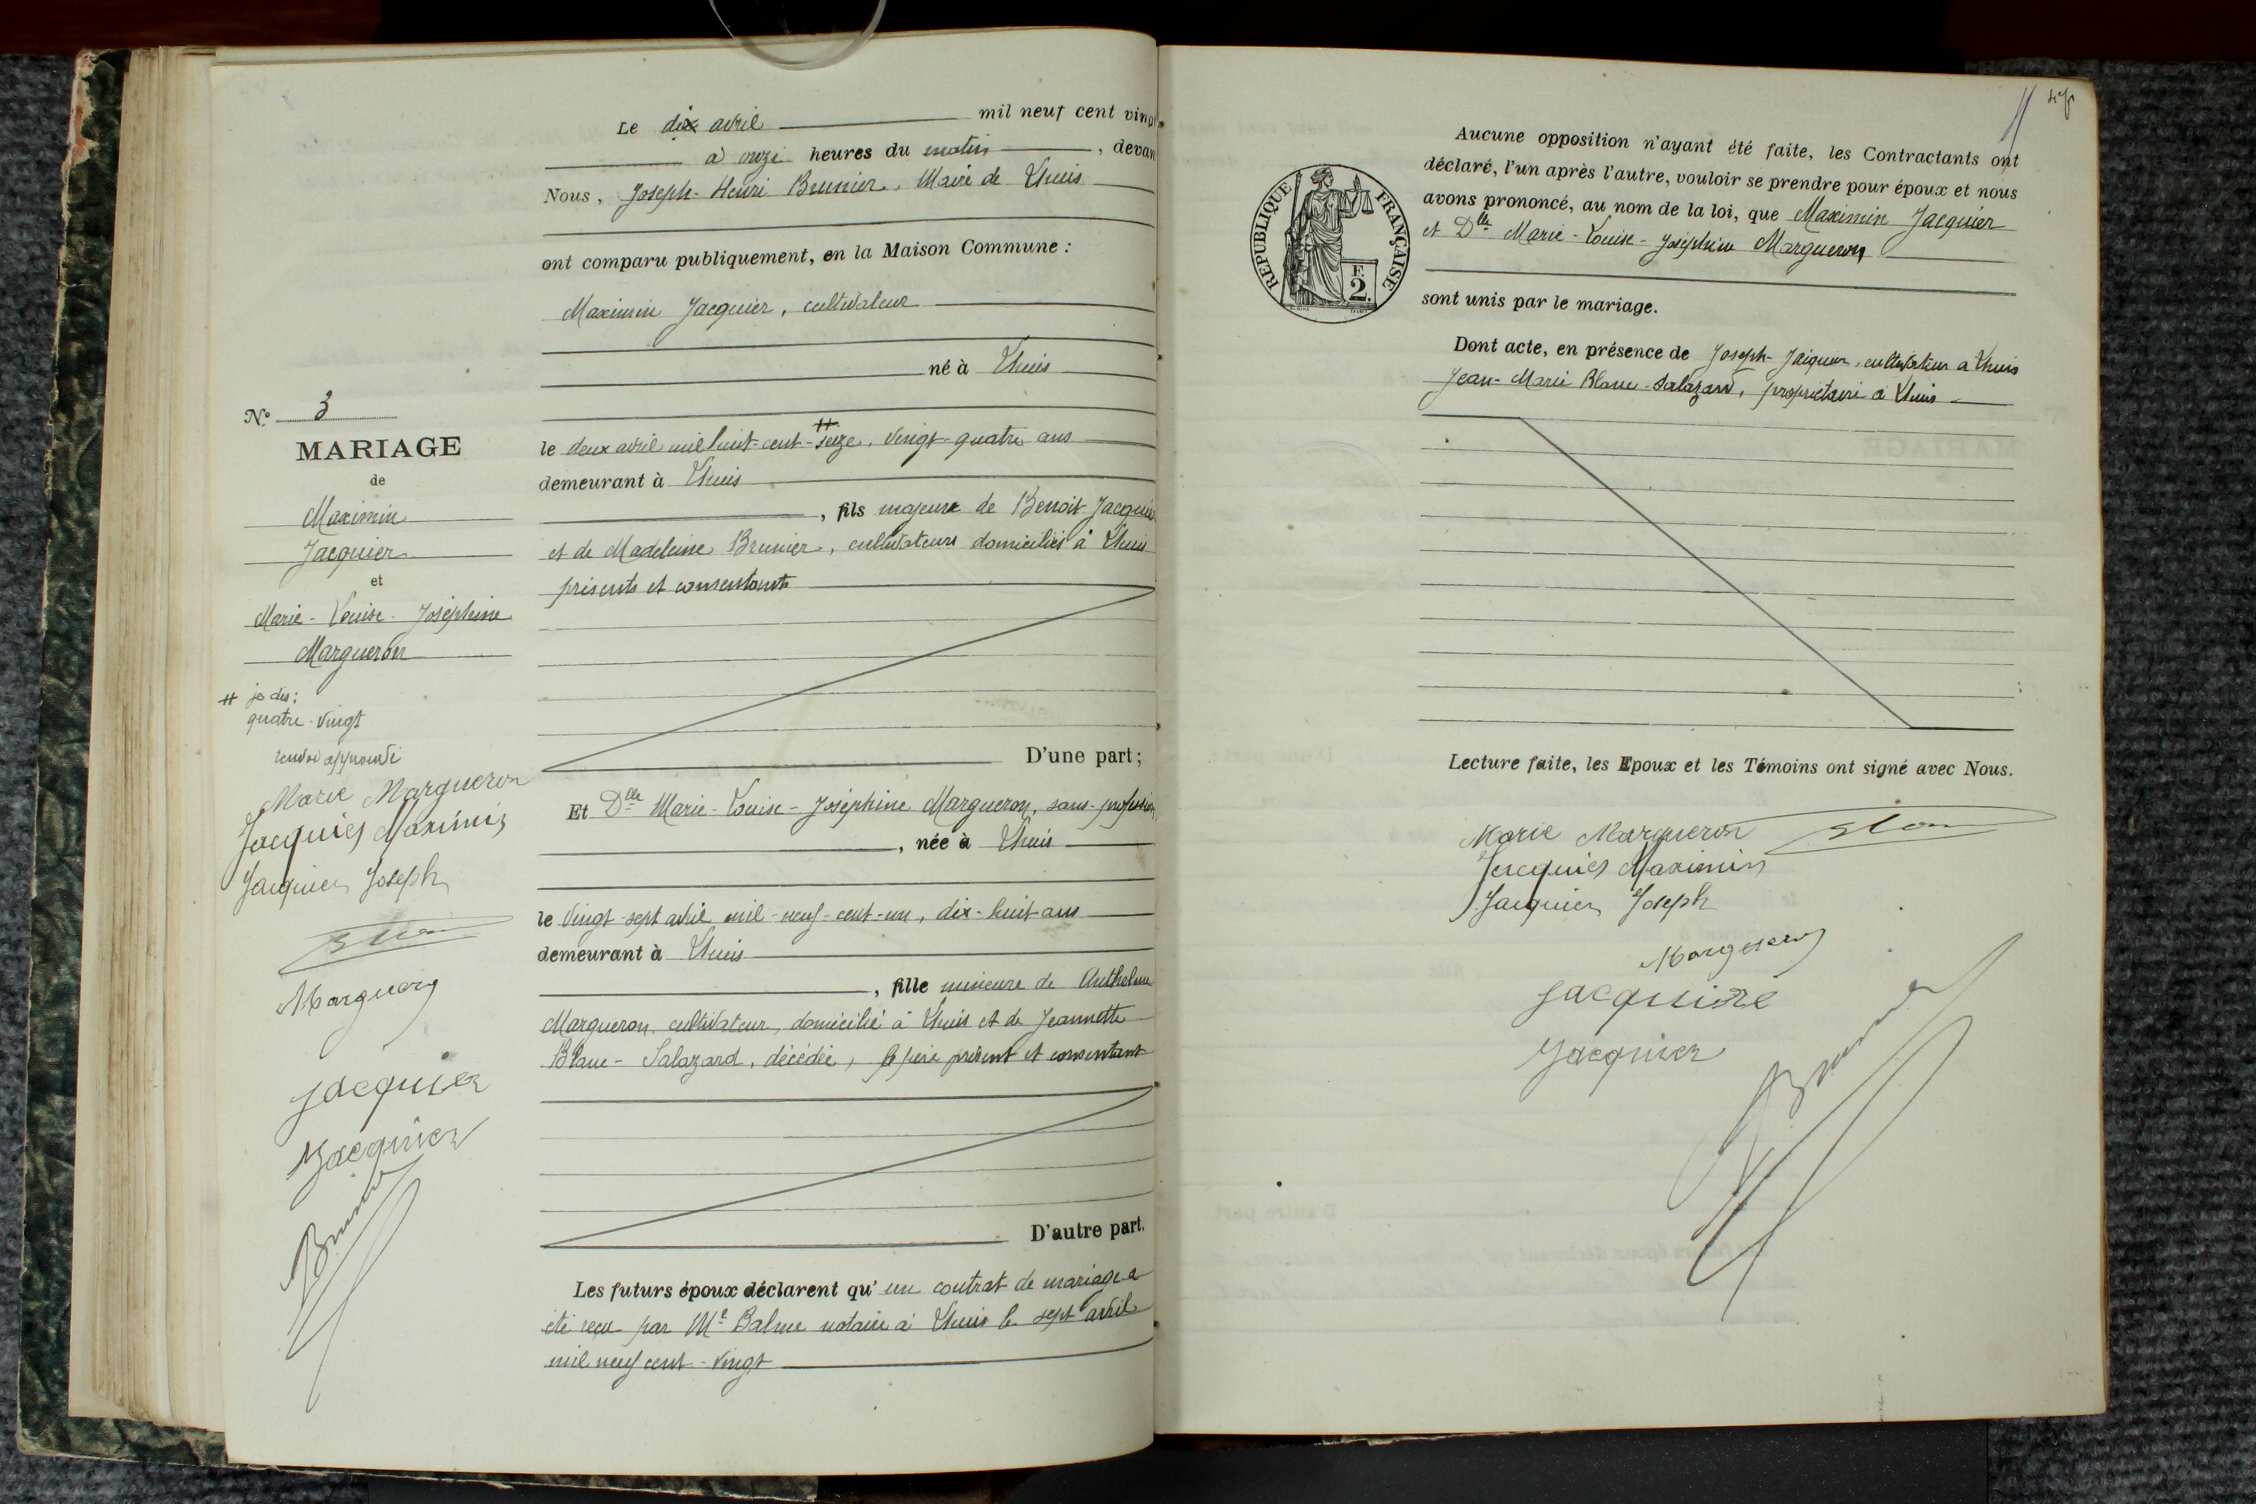 Le dix avril mil neuf cent vingt
à onze heures du matin, devan
Nous, Joseph-Henri Brunier, Maire de Lhuis
ont comparu publiquement, en la Maison Commune :
Maximin Jacquier, cultivateur
né à Lhuis
N° 3
MARIAGE
de
Maximin
Jacquier
et
Marie-Louise-Joséphine
Margueron
# je dis :
quatre-vingt
renvoi approuvé
Marie Margueron
Jacquier Maximin
Jacquier Joseph
Margueron
Jacquier
Jacquier
Brunier
le deux avril mil huit-cent-# seize, vingt-quatre ans
demeurant à Lhuis
, fils majeur de Benoit Jacquier
et de Madeleine Brunier, cultivateurs domiciliés à Lhuis
présents et consentants
D'une part ;
Et Dlle Marie-Louise-Joséphine Margueron, sans profession
, née à Lhuis
le vingt-sept avril mil-neuf-cent-un, dix-huit ans
demeurant à Lhuis
, fille mineure de Anthelme
Margueron, cultivateur, domicilié à Lhuis et de Jeannette
Blanc-Salazard, décédée, le père présent et consentant
D'autre part.
Les futurs époux déclarent qu'un contrat de mariage a
été reçu par Me Balme notaire à Lhuis le sept avril
mil neuf cent-vingt
Aucune opposition n'ayant été faite, les Contractants ont
déclaré, l'un après l'autre, vouloir se prendre pour époux et nous
avons prononcé, au nom de la loi, que Maximin Jacquier
et Dlle Marie-Louise-Joséphine Margueron
RÉPUBLIQUE FRANÇAISE
F.
2.
sont unis par le mariage.
Dont acte, en présence de Joseph-Jacquier, cultivateur à Lhuis
Jean-Marie Blanc-Salazard, propriétaire à Lhuis
Lecture faite, les Epoux et les Témoins ont signé avec Nous.
Marie Margueron
Jacquier Maximin
Jacquier Joseph
Margueron
Jacquier
Jacquier
Brunier